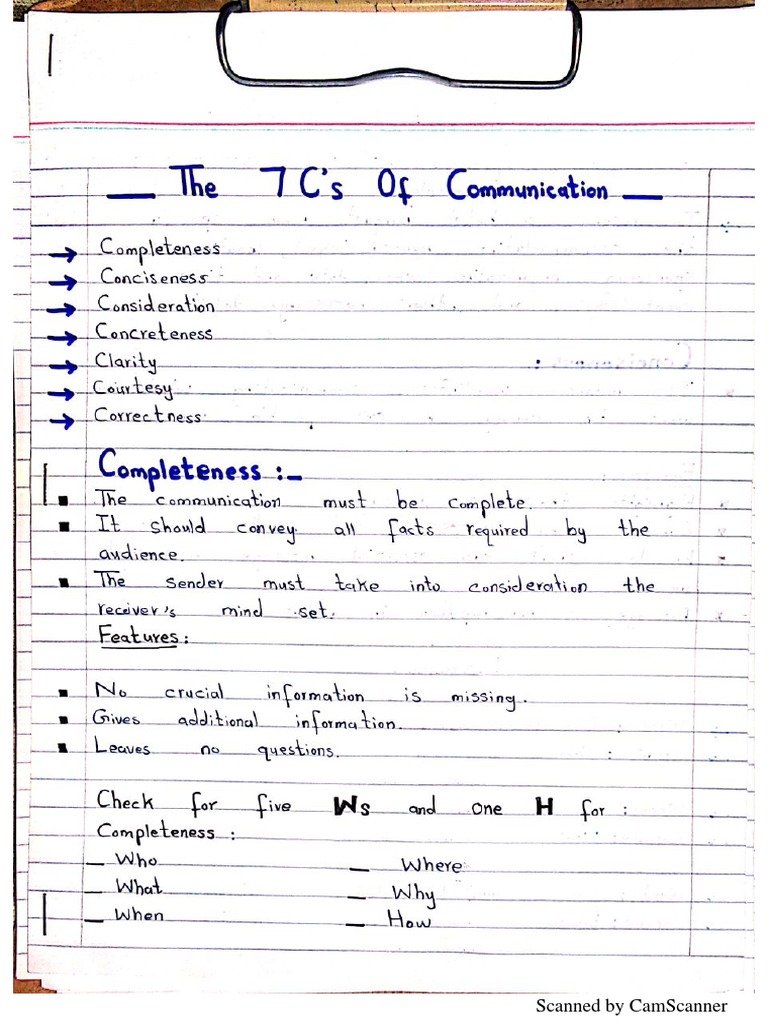 The 7 C's Of Communication
→ Completeness
→ Conciseness
→ Consideration
→ Concreteness
→ Clarity
→ Courtesy
→ Correctness
Completeness :-
▪ The communication must be complete.
▪ It should convey all facts required by the
audience.
▪ The sender must take into consideration the
receiver's mind set.
Features:
▪ No crucial information is missing.
▪ Gives additional information.
▪ Leaves no questions.
Check for five Ws and one H for :
Completeness :
– Who – Where
– What – Why
– When – How
Scanned by CamScanner